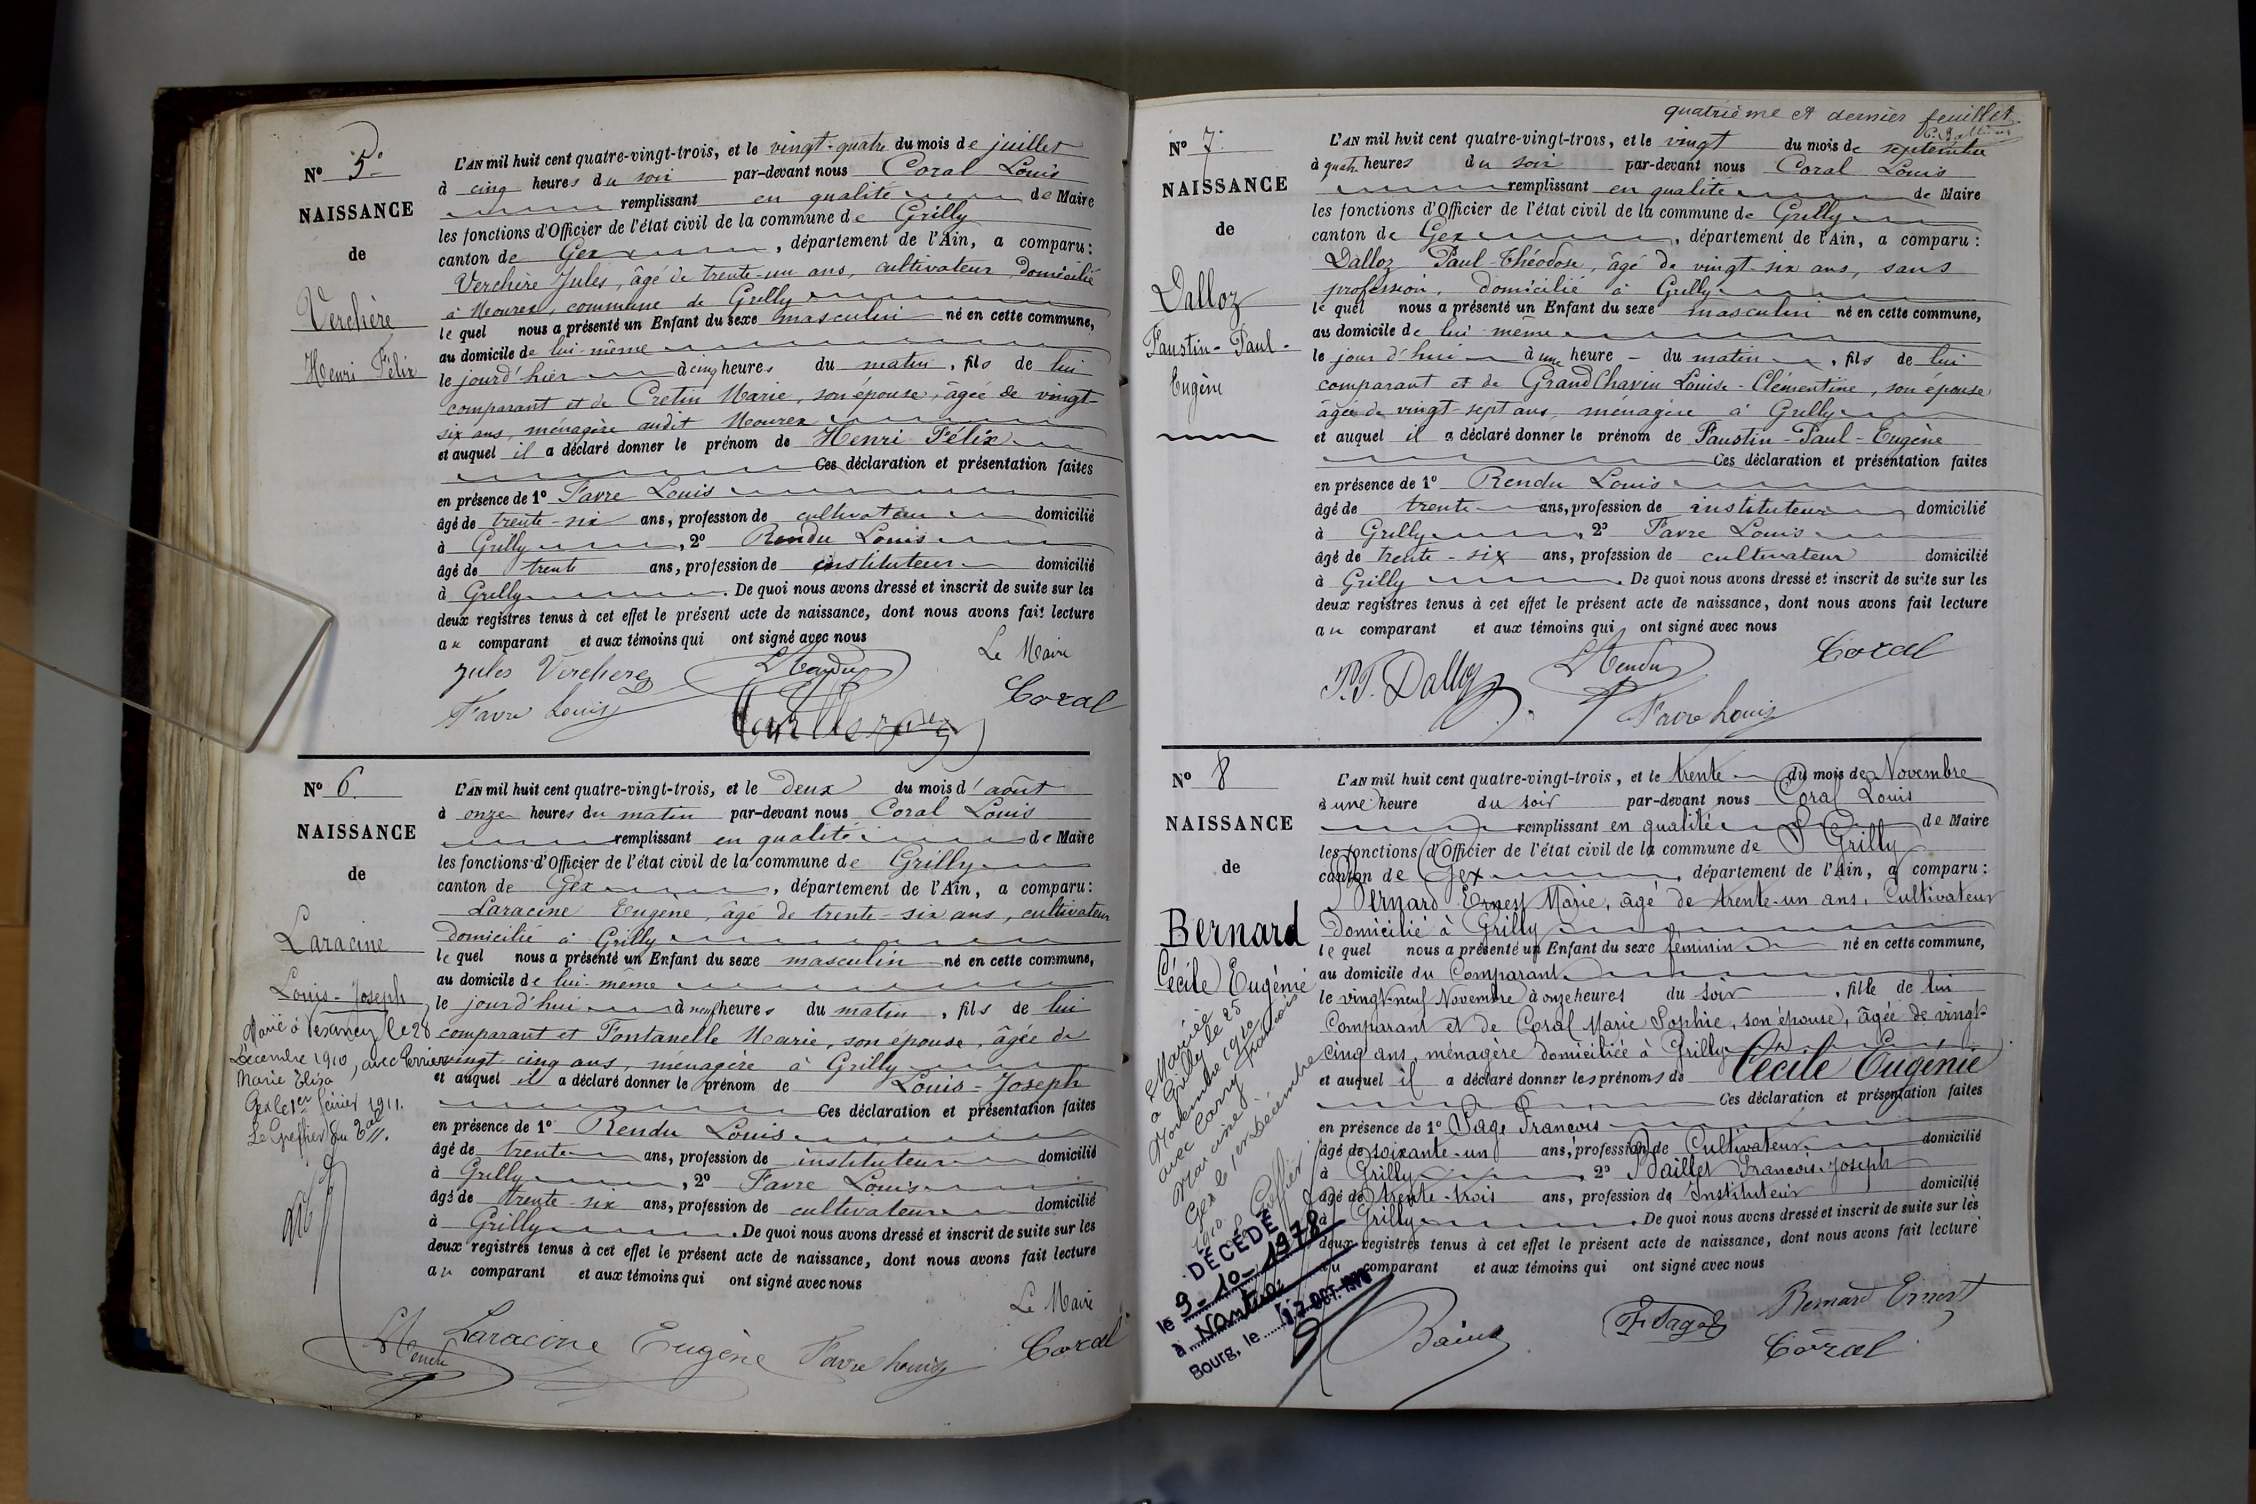 Nº 5
NAISSANCE
de
Verchère
Henri Félix
L'AN mil huit cent quatre-vingt-trois, et le vingt-quatre du mois de juillet
à cinq heures du soir par-devant nous Coral Louis
remplissant en qualité de Maire
les fonctions d'Officier de l'état civil de la commune de Grilly
canton de Gex, département de l'Ain, a comparu:
Verchère Jules, âgé de trente-un ans, cultivateur, domicilié
à Mourex, commune de Grilly
le quel nous a présenté un Enfant du sexe masculin né en cette commune,
au domicile de lui-même
le jourd'hier à cinq heures du matin, fils de lui
comparant et de Cretin Marie, son épouse, âgée de vingt-
six ans, ménagère audit Mourex
et auquel il a déclaré donner le prénom de Henri Félix
Ces déclaration et présentation faites
en présence de 1º Favre Louis
âgé de trente-six ans, profession de cultivateur domicilié
à Grilly, 2º Rendu Louis
âgé de trente ans, profession de instituteur domicilié
à Grilly. De quoi nous avons dressé et inscrit de suite sur les
deux registres tenus à cet effet le présent acte de naissance, dont nous avons fait lecture
au comparant et aux témoins qui ont signé avec nous
Le Maire
Jules Verchere LRendu
Favre Louis Coral
Nº 6
NAISSANCE
de
Laracine
Louis-Joseph
Marié à Versonnex le 28
Décembre 1910, avec Perrier
Marie Elisa
Gex le 1er février 1911.
Le Greffier du Tal.
L'AN mil huit cent quatre-vingt-trois, et le deux du mois d'août
à onze heures du matin par-devant nous Coral Louis
remplissant en qualité de Maire
les fonctions d'Officier de l'état civil de la commune de Grilly
canton de Gex, département de l'Ain, a comparu:
Laracine Eugène, âgé de trente-six ans, cultivateur
domicilié à Grilly
le quel nous a présenté un Enfant du sexe masculin né en cette commune,
au domicile de lui-même
le jourd'hui à neuf heures du matin, fils de lui
comparant et Fontanelle Marie, son épouse, âgée de
vingt-cinq ans, ménagère à Grilly
et auquel il a déclaré donner le prénom de Louis-Joseph
Ces déclaration et présentation faites
en présence de 1º Rendu Louis
âgé de trente ans, profession de instituteur domicilié
à Grilly, 2º Favre Louis
âgé de trente-six ans, profession de cultivateur domicilié
à Grilly. De quoi nous avons dressé et inscrit de suite sur les
deux registres tenus à cet effet le présent acte de naissance, dont nous avons fait lecture
au comparant et aux témoins qui ont signé avec nous
Le Maire
LRendu Laracine Eugène Favre Louis Coral
quatrième et dernier feuillet
Nº 7
NAISSANCE
de
Dalloz
Faustin-Paul-
Eugène
L'AN mil huit cent quatre-vingt-trois, et le vingt du mois de septembre
à quatre heures du soir par-devant nous Coral Louis
remplissant en qualité de Maire
les fonctions d'Officier de l'état civil de la commune de Grilly
canton de Gex, département de l'Ain, a comparu:
Dalloz Paul-Théodose, âgé de vingt-six ans, sans
profession, domicilié à Grilly
le quel nous a présenté un Enfant du sexe masculin né en cette commune,
au domicile de lui-même
le jour d'hui à une heure du matin, fils de lui
comparant et de GrandChavin Louise-Clémentine, son épouse
âgée de vingt-sept ans, ménagère à Grilly
et auquel il a déclaré donner le prénom de Faustin-Paul-Eugène
Ces déclaration et présentation faites
en présence de 1º Rendu Louis
âgé de trente ans, profession de instituteur domicilié
à Grilly, 2º Favre Louis
âgé de trente-six ans, profession de cultivateur domicilié
à Grilly. De quoi nous avons dressé et inscrit de suite sur les
deux registres tenus à cet effet le présent acte de naissance, dont nous avons fait lecture
au comparant et aux témoins qui ont signé avec nous
P.T. Dalloz LRendu Coral
Favre Louis
Nº 8
NAISSANCE
de
Bernard
Cécile Eugénie
Mariée
à Grilly le 25
Novembre 1910
avec Carry François
Marcune
Gex le 1er Décembre
1910
Le Greffier
DÉCÉDÉ
le 9-10-1978
à Nantua
Bourg, le 17 OCT. 1978
L'AN mil huit cent quatre-vingt-trois, et le trente du mois de Novembre
à une heure du soir par-devant nous Coral Louis
remplissant en qualité de Maire
les fonctions d'Officier de l'état civil de la commune de Grilly
canton de Gex, département de l'Ain, a comparu:
Bernard Ernest Marie, âgé de trente-un ans, Cultivateur
Domicilié à Grilly
le quel nous a présenté un Enfant du sexe féminin né en cette commune,
au domicile du Comparant
le vingt-neuf Novembre à onze heures du soir, fille de lui
Comparant et de Coral Marie Sophie, son épouse, âgée de vingt-
cinq ans, ménagère domiciliée à Grilly
et auquel il a déclaré donner les prénoms de Cécile Eugénie
Ces déclaration et présentation faites
en présence de 1º Sage François
âgé de soixante-un ans, profession de Cultivateur domicilié
à Grilly 2º Baillet François-Joseph
âgé de trente-trois ans, profession de Instituteur domicilié
à Grilly. De quoi nous avons dressé et inscrit de suite sur les
deux registres tenus à cet effet le présent acte de naissance, dont nous avons fait lecture
au comparant et aux témoins qui ont signé avec nous
F. Sage Bernard Ernest
Coral